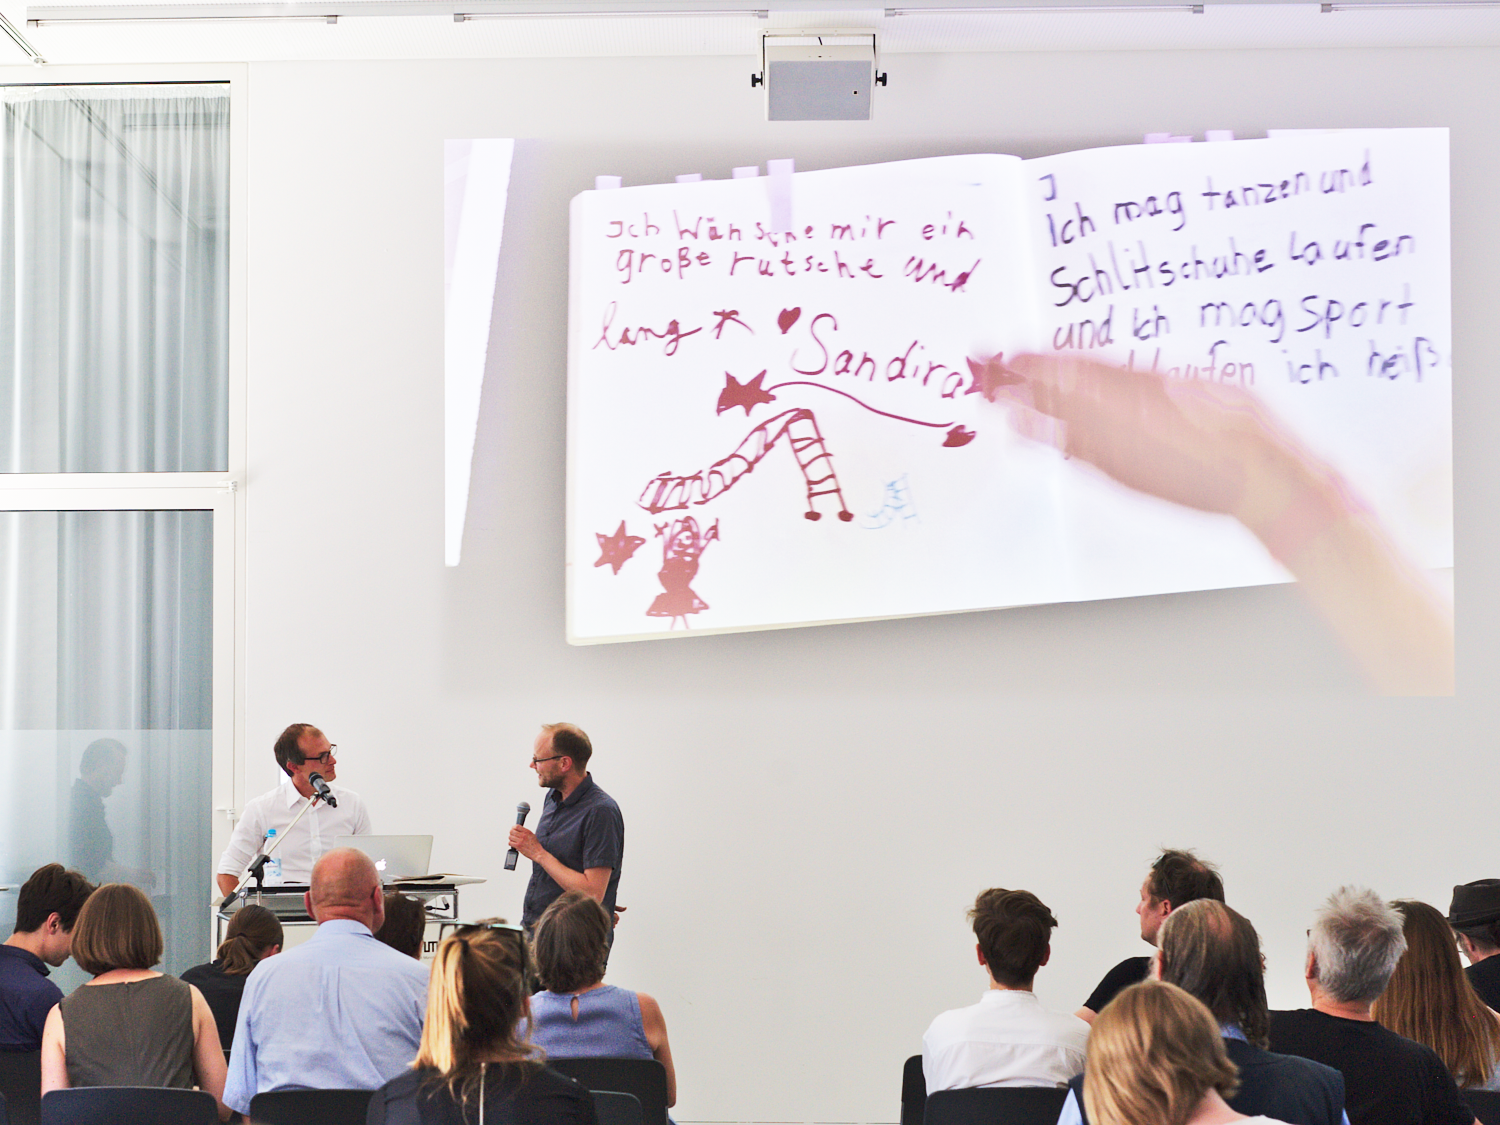 Ich wünsche mir ein
große rutsche und
lang
Sandira
J
Ich mag tanzen und
Schlitschuhe laufen
und Ich mag Sport
laufen ich heiß